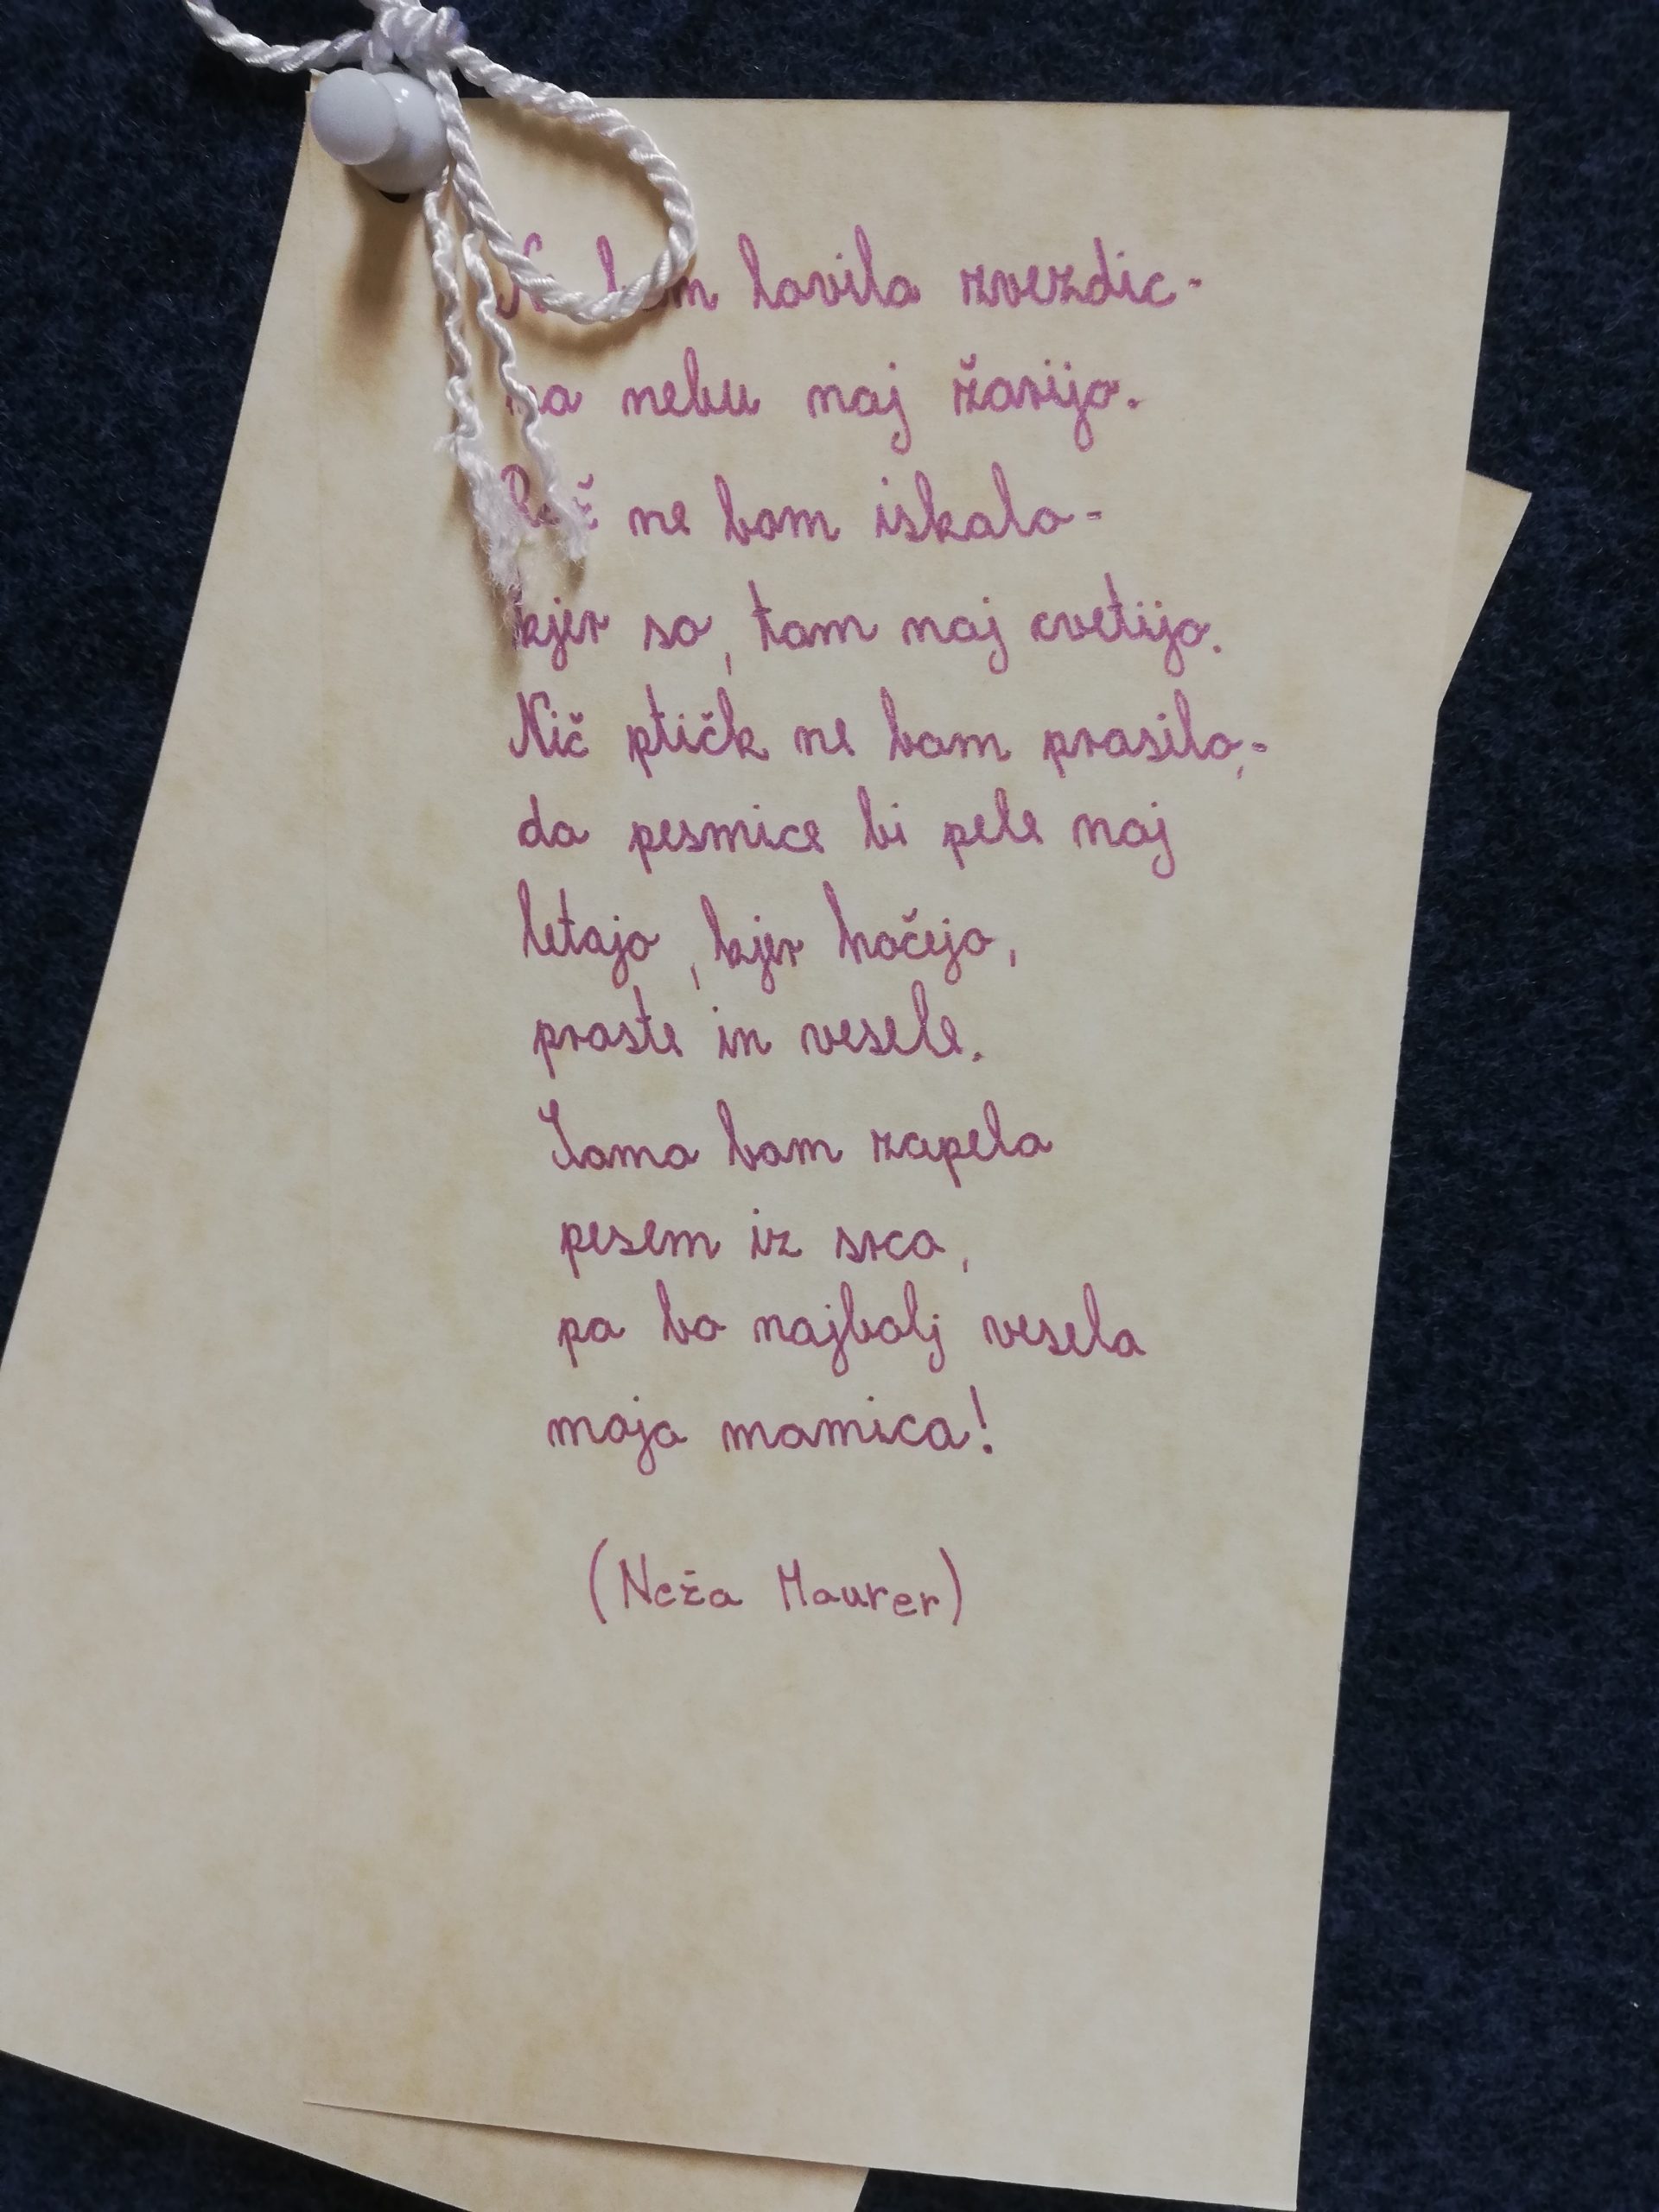 Ne bom lovila zvezdic-
na nebu naj žarijo.
Rož ne bom iskala-
kjer so, tam naj cvetijo.
Nič ptičk ne bom prosila,-
da pesmice bi pele naj
letajo, kjer hočejo,
proste in vesele.
Sama bom zapela
pesem iz srca,
pa bo najbolj vesela
moja mamica!
(Neža Maurer)